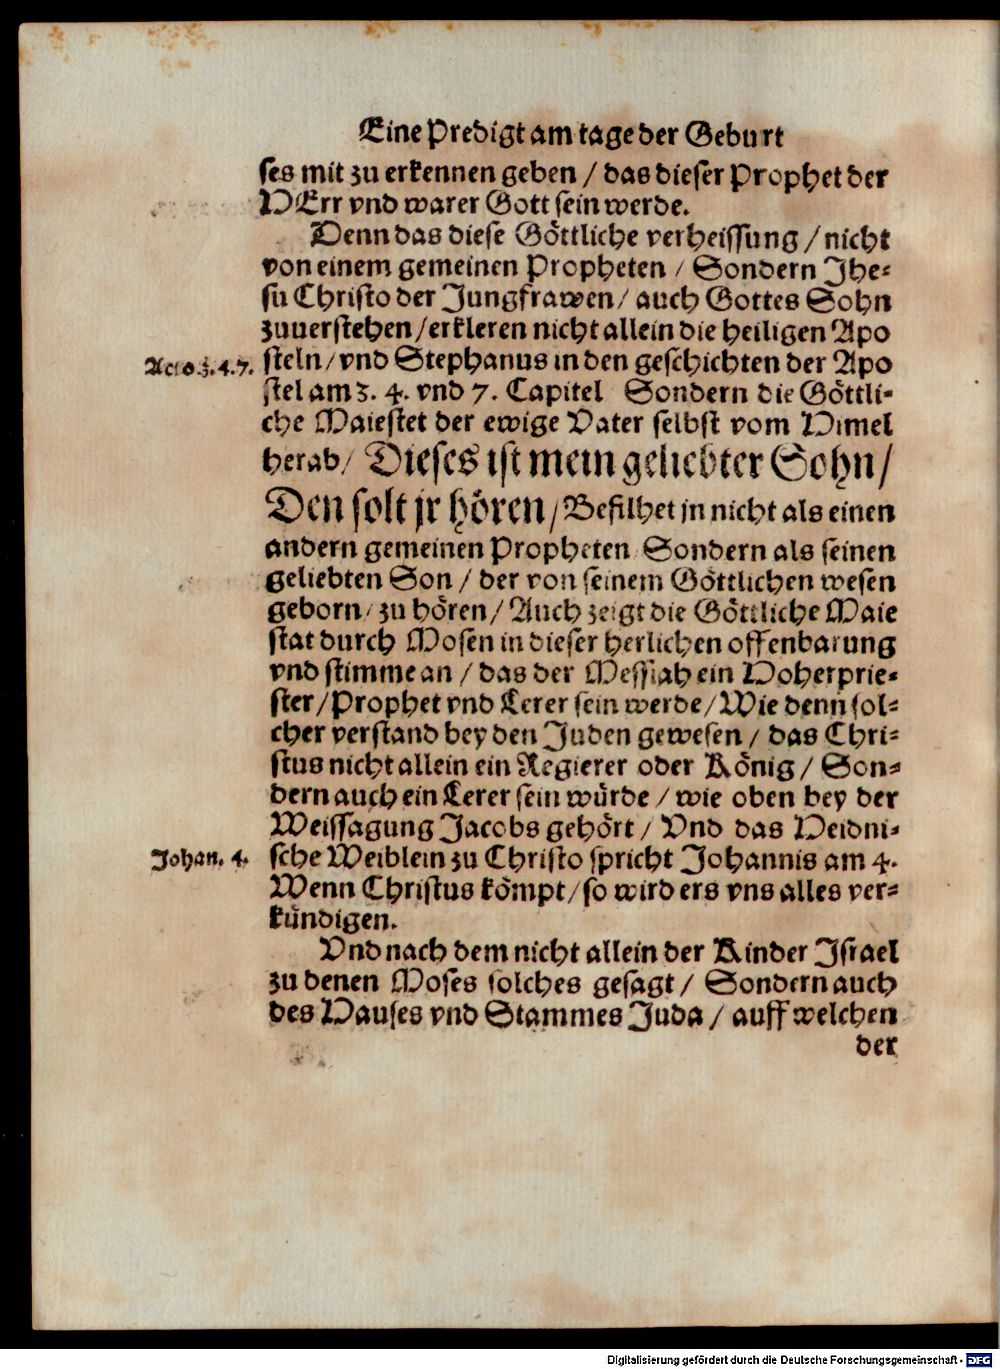 Eine Predigt am tage der Geburt
ses mit zu erkennen geben / das dieser Prophet der
HErr vnd warer Gott sein werde.
Denn das diese Göttliche verheissung / nicht
von einem gemeinen Propheten / Sondern Jhe-
su Christo der Jungfrawen / auch Gottes Sohn
zuuerstehen / erkleren nicht allein die heiligen Apo
Acto. 3. 4. 7.
steln / vnd Stephanus in den geschichten der Apo
stel am 3. 4. vnd 7. Capitel Sondern die Göttli-
che Maiestet der ewige Vater selbst vom Himel
herab / Dieses ist mein geliebter Sohn /
Den solt jr hören / Befilhet jn nicht als einen
andern gemeinen Propheten Sondern als seinen
geliebten Son / der von seinem Göttlichen wesen
geborn / zu hören / Auch zeigt die Göttliche Maie
stat durch Mosen in dieser herlichen offenbarung
vnd stimme an / das der Messiah ein Hoherprie-
ster / Prophet vnd Lerer sein werde / Wie denn sol-
cher verstand bey den Juden gewesen / das Chri-
stus nicht allein ein Regierer oder König / Son-
dern auch ein Lerer sein würde / wie oben bey der
Weissagung Jacobs gehört / Vnd das Heidni-
Johan. 4.
sche Weiblein zu Christo spricht Johannis am 4.
Wenn Christus kömpt / so wird ers vns alles ver-
kündigen.
Vnd nach dem nicht allein der Kinder Israel
zu denen Moses solches gesagt / Sondern auch
des Hauses vnd Stammes Juda / auff welchen
der
Digitalisierung gefördert durch die Deutsche Forschungsgemeinschaft - DFG